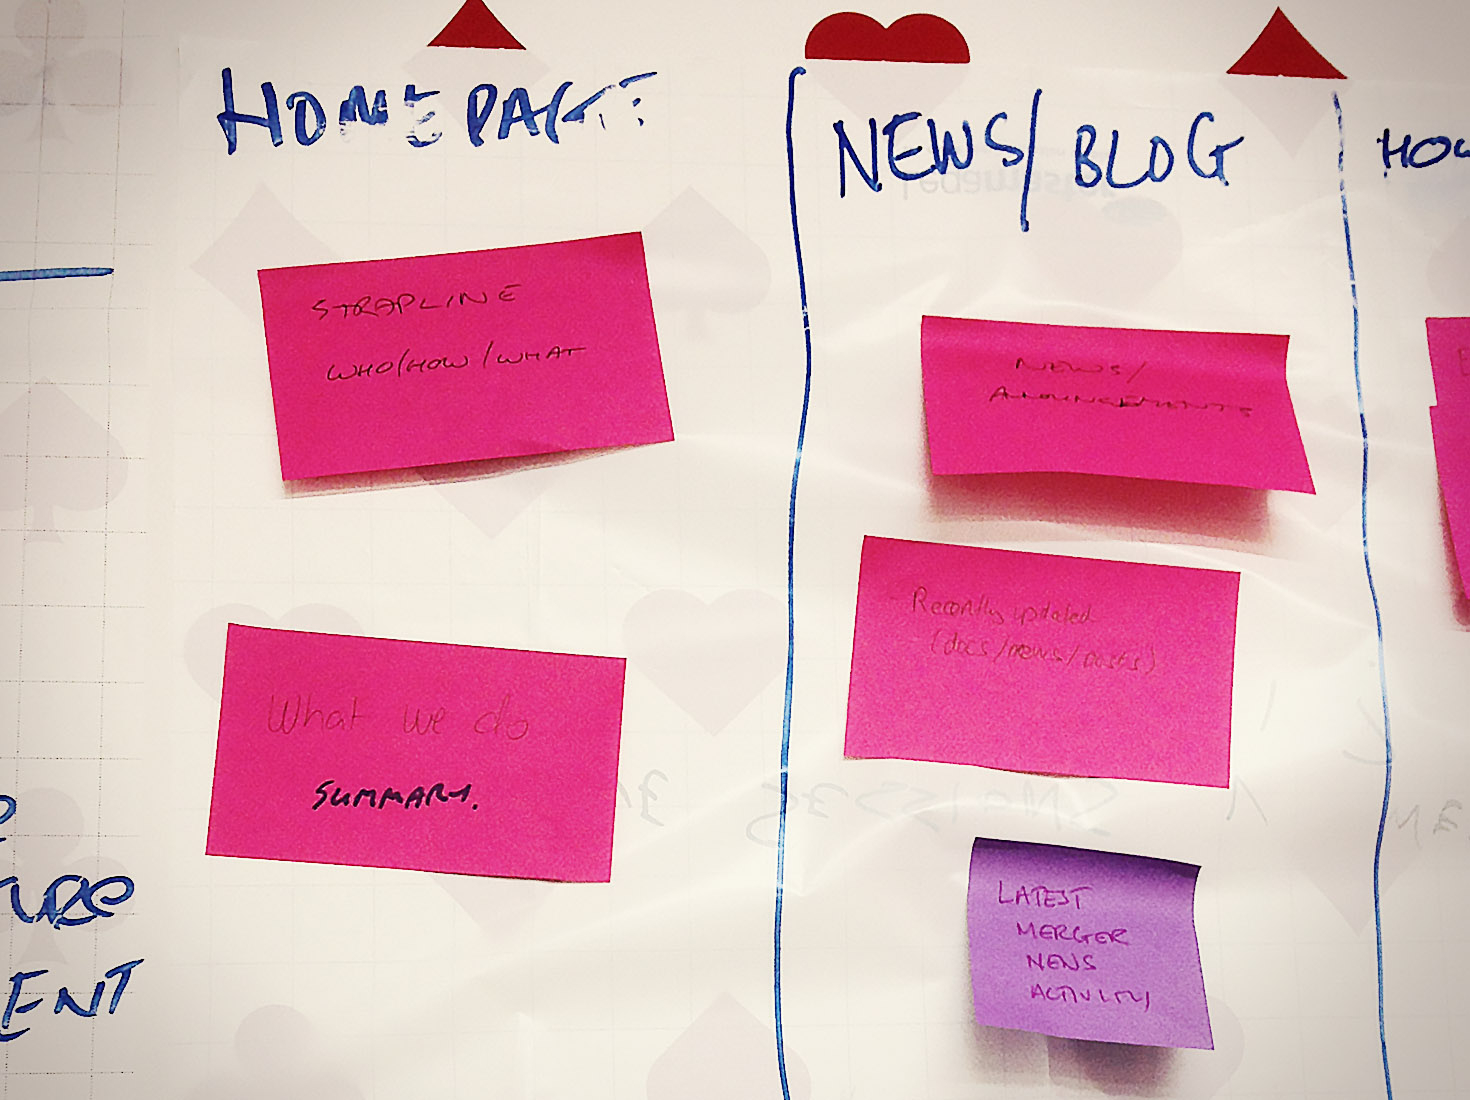 HOMEPAGE
STRAPLINE
WHO/HOW/WHAT
What we do
SUMMARY.
NEWS/BLOG
NEWS/
ANOUNCEMENTS
Recently updated
(docs/news/posts)
LATEST
MERGER
NEWS
ACTIVITY
HOW
ENT